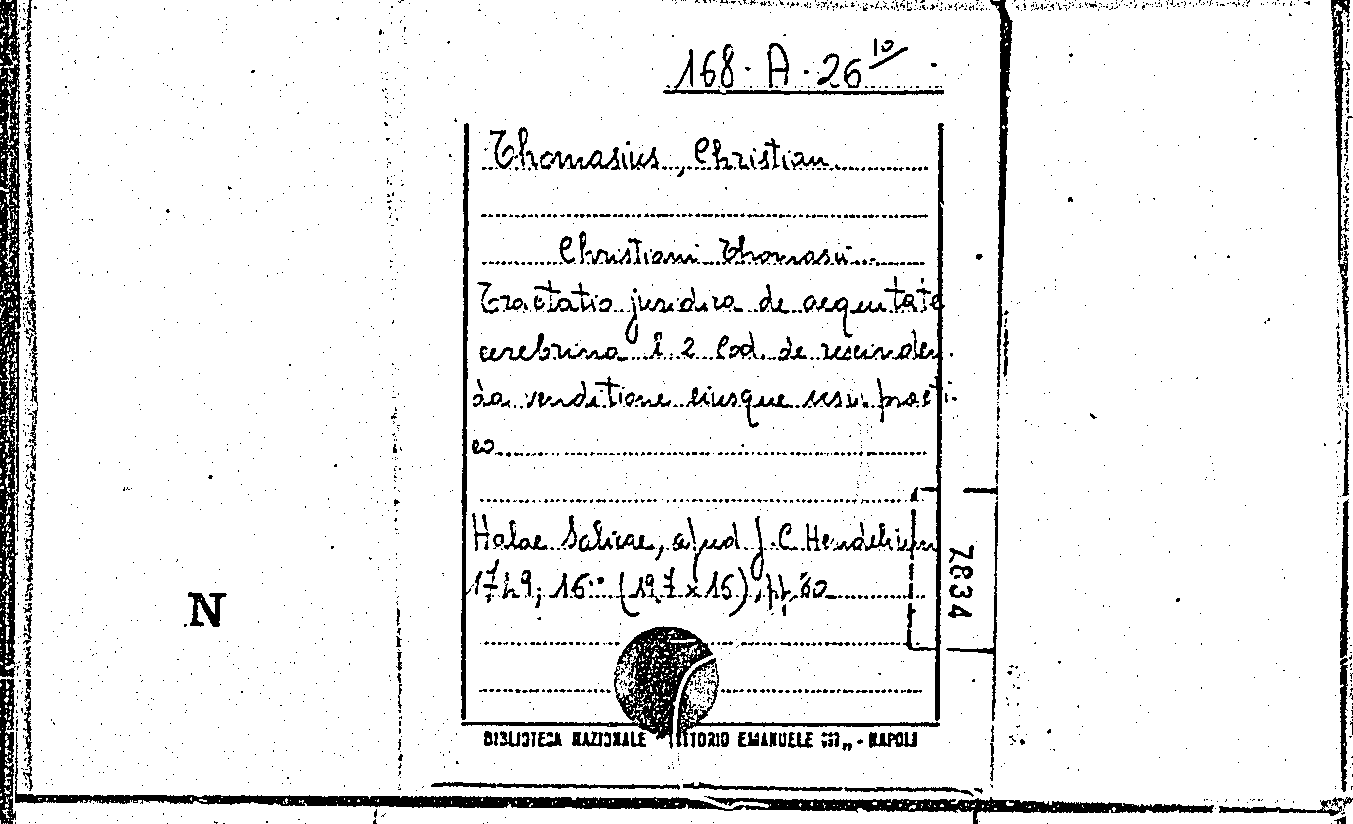 168. A. 26 10
Thomasius, Christian
Christiani Thomasii
Tractatio juridica de aequitate
cerebrina l. 2 Cod. de rescinden-
da venditione eiusque usu practi-
co
Halae Salicae, apud J. C. Hendelium
1749; 16° (19,7 x 16), pp. 60
7834
N
BIBLIOTECA NAZIONALE "VITTORIO EMANUELE III" - NAPOLI